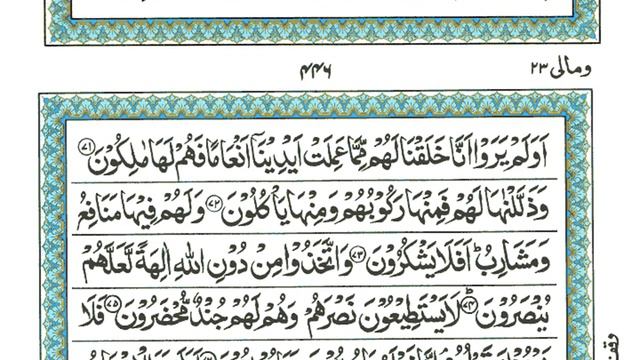 ومالی ۲۳
۴۴۶
اَوَلَمْ يَرَوْا اَنَّا خَلَقْنَا لَهُمْ مِّمَّا عَمِلَتْ اَيْدِيْنَاۤ اَنْعَامًا فَهُمْ لَهَا مٰلِكُوْنَ ۷۱
وَذَلَّلْنٰهَا لَهُمْ فَمِنْهَا رَكُوْبُهُمْ وَمِنْهَا يَاْكُلُوْنَ ۷۲ وَلَهُمْ فِيْهَا مَنَافِعُ
وَمَشَارِبُ ؕ اَفَلَا يَشْكُرُوْنَ ۷۳ وَاتَّخَذُوْا مِنْ دُوْنِ اللّٰهِ اٰلِهَةً لَّعَلَّهُمْ
يُنْصَرُوْنَ ۷۴ لَا يَسْتَطِيْعُوْنَ نَصْرَهُمْ وَهُمْ لَهُمْ جُنْدٌ مُّحْضَرُوْنَ ۷۵ فَلَا